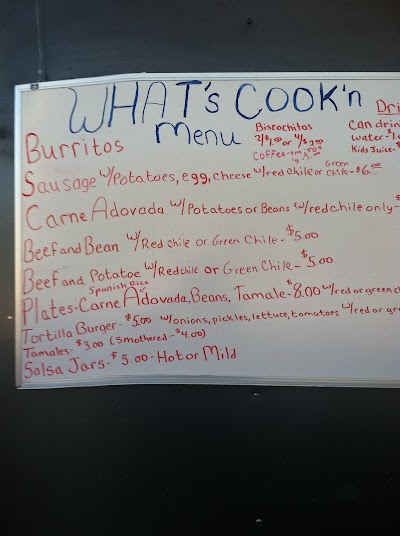 WHAT's COOK'n
Menu
Dri
Biscochitos
2/$1.00 or 4/$2.00
Coffee-sm
CAN drin
water-
Kids Juice-
Burritos
Sausage w/Potatoes, egg, cheese w/red chile or Green chile-$6.00
Carne Adovada w/Potatoes or Beans w/red chile only-$
Beef and Bean w/Red chile or Green Chile-$5.00
Beef and Potatoe w/Red chile or Green Chile-$5.00
Spanish Rice
Plates-Carne Adovada, Beans, Tamale-$8.00 w/red or green c
Tortilla Burger-$5.00 w/onions, pickles, lettuce, tomatoes w/red or gre
Tamales-$3.00 (Smothered-$4.00)
Salsa Jars-$5.00-Hot or Mild